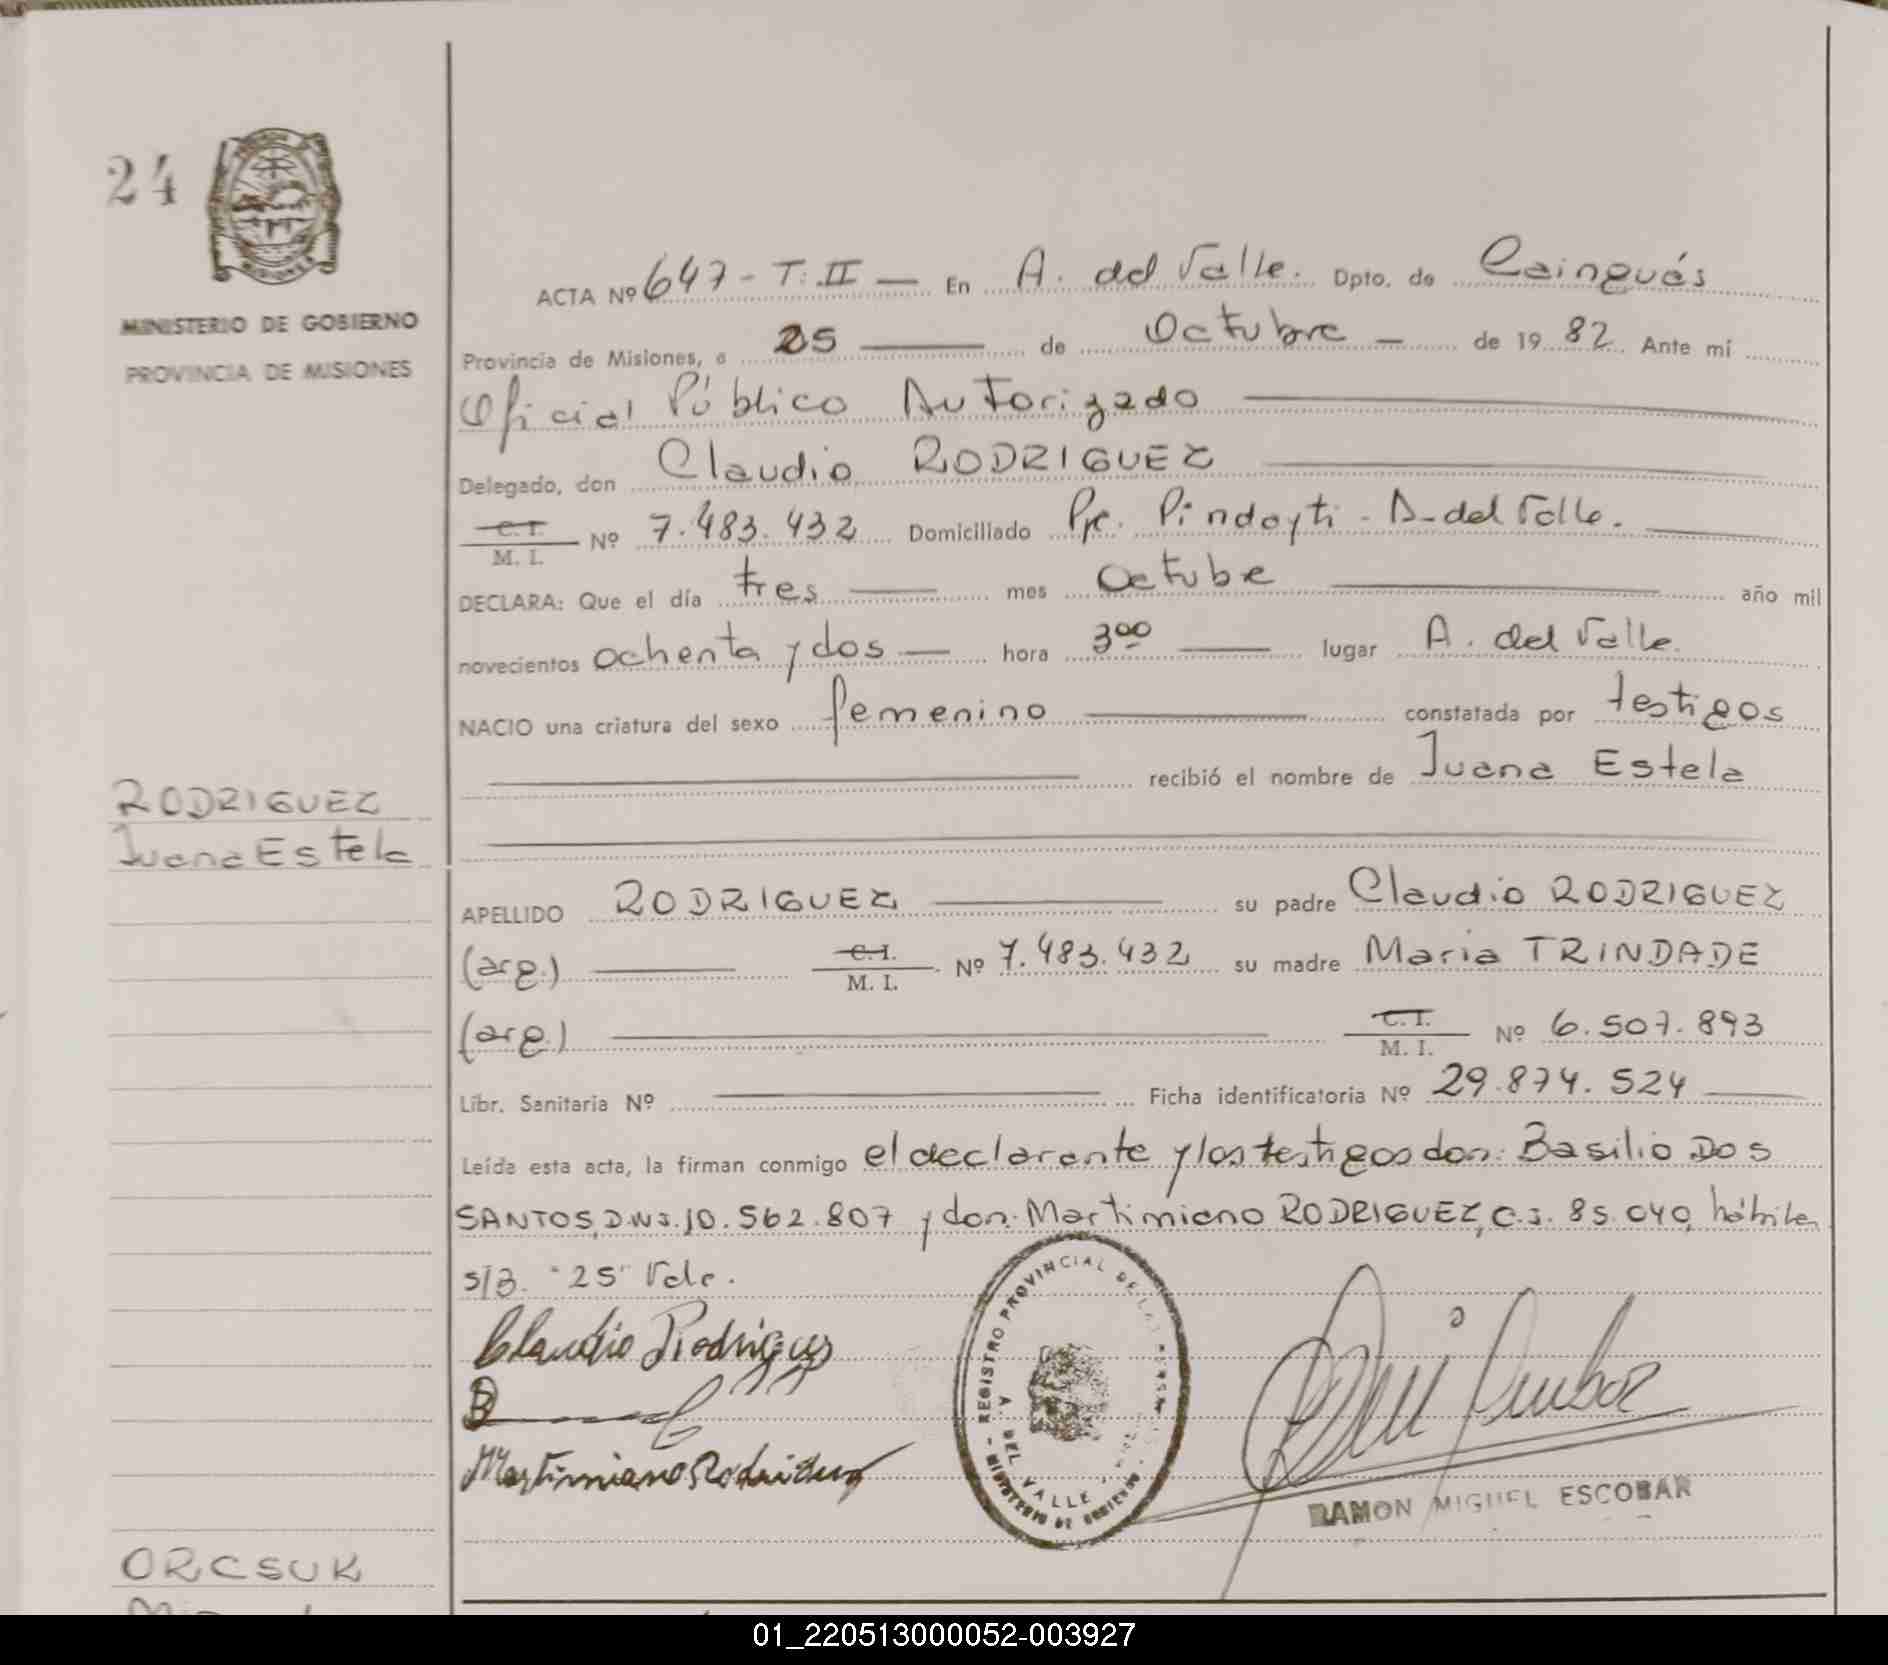 24
MINISTERIO DE GOBIERNO
PROVINCIA DE MISIONES
ACTA Nº 647 - T. II — En A. del Valle. Dpto. de Cainguás
Provincia de Misiones, a 25 — de Octubre — de 19 82 Ante mí
Oficial Público Autorizado
Delegado, don Claudio RODRIGUEZ
C. I.
M. I. Nº 7.483.432 Domiciliado Pje. Pindayti - A. del Valle.
DECLARA: Que el día tres — mes octube — año mil
novecientos ochenta y dos — hora 3⁰⁰ — lugar A. del Valle.
NACIO una criatura del sexo femenino — constatada por testigos
recibió el nombre de Juana Estela
RODRIGUEZ
Juana Estela
APELLIDO RODRIGUEZ — su padre Claudio RODRIGUEZ
(arg.) — C. I.
M. I. Nº 7.483.432 su madre Maria TRINDADE
(arg.) — C. I.
M. I. Nº 6.507.893
Libr. Sanitaria Nº — Ficha identificatoria Nº 29.874.524
Leída esta acta, la firman conmigo el declarante y los testigos don: Basilio DOS
SANTOS, D.N.I. 10.562.807 y don: Martimiano RODRIGUEZ, C.I. 85.040, hábiles
s/B. "25" Vale.
Claudio Rodriguez
Martimiano Rodriguez
REGISTRO PROVINCIAL DE LAS
A. DEL VALLE
MINISTERIO DE GOBIERNO
RAMON MIGUEL ESCOBAR
ORCSUK
01_220513000052-003927